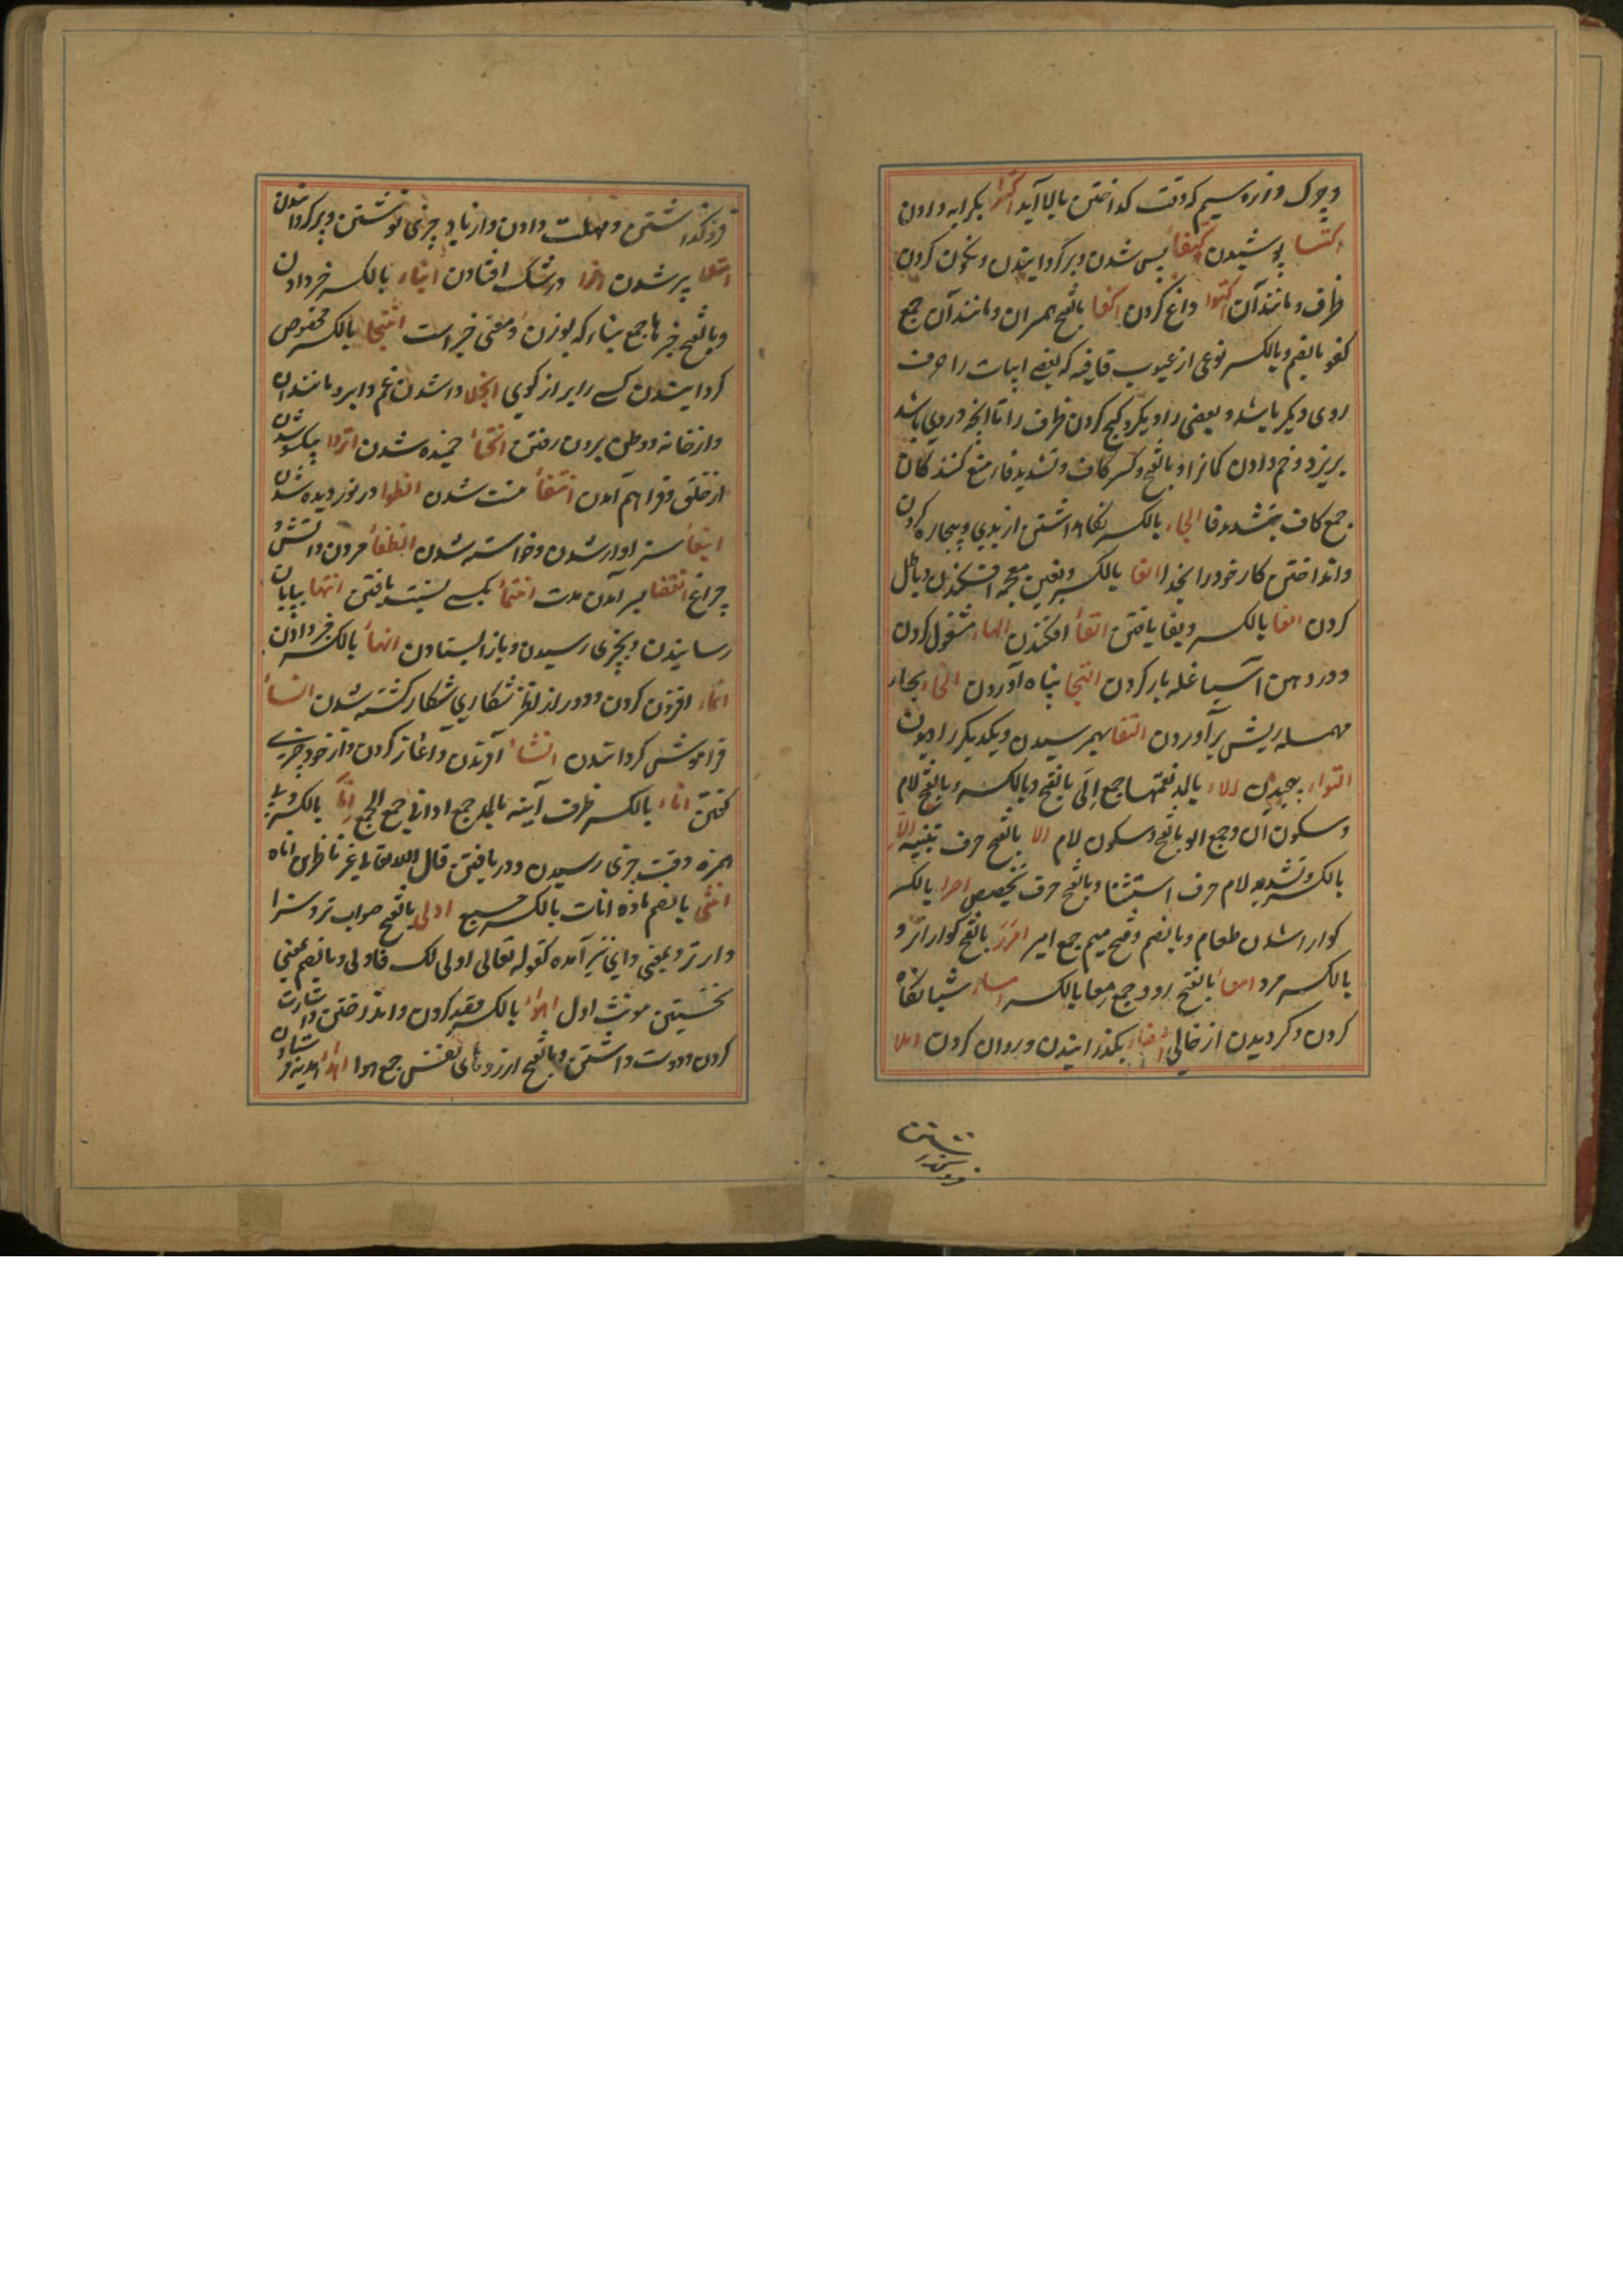 و چرک و زر و سیم که وقت کداختن بالا آید اکترا بکرایه دادن
اکتسا پوشیدن اکتفا پس شدن و برگردانیدن و نکون کردن
ظرف و مانند آن اکتوا داغ کردن اکفا بالفتح همسران و مانند آن جمع
کفو بالضم و بالکسر نوعی از عیوب قافیه که بعضی ابیات را حرف
روی دیکر باشد و بعضی را دیکر و کج کردن ظرف را تا انچه در وی باشد
بریزد و خم دادن کمانرا و بالفتح و کسر کاف و تشدید فا منع کنندکان
جمع کاف بتشدید فا الجاء بالکسر نکاهداشتن از بدی و بیچاره کردن
و انداختن کار خود را بخدا الغا بالکسر و بغین معجمه افکندن و باطل
کردن الفا بالکسر و بفا یافتن القأ افکندن الهاء مشغول کردن
و در دهن آسیا غله بار کردن التجا پناه آوردن التحاء بحاء
مهمله ریش برآوردن التقا بهم رسیدن و یکدیکر را دیدن
التواء پیچیدن الاء بالمد نعمتها جمع الی بالفتح و بالکسر و بالفتح لام
و سکون ان و جمع الو بالفتح و سکون لام الا بالفتح حرف تنبیه الا
بالکسر و تشدید لام حرف استثنا و بالفتح حرف تخصیص امرا بالکسر
کوارا شدن طعام و بالضم و فتح میم جمع امیر امرء بالفتح کواراتر و
بالکسر مرد امعا بالفتح روده جمع معا بالکسر امساء شبانکاه
کردن و کردیدن از حالی امضاء بکذرانیدن و روان کردن املا
فروکذاشتن
فروکذاشتن و مهلت دادن و از یاد چیزی نوشتن و پر کردانیدن
امتلا پر شدن امترا در شک افتادن انباء بالکسر خبر دادن
و بالفتح خبرها جمع نباء که بوزن و معنی خبر است انتجا بالکسر مخصوص
کردانیدن کسی را براز کویی انجلا وا شدن غم و ابر و مانند ان
و از خانه و وطن برون رفتن انحنأ خمیده شدن انزوا یکسو شدن
از خلق و فراهم آمدن انتفأ نیست شدن انطوا در نوردیده شدن
انبغأ سزاوار شدن و خواسته شدن انطفأ مردن آتش و
چراغ انقضا بسر آمدن مدت انتمأ بکسی نسبت یافتن انتها بپایان
رسانیدن و بچیزی رسیدن و باز ایستادن انهأ بالکسر خبر دادن
انماء افزون کردن و دور از نظر شکاری شکار کشته شدن انسأ
فراموش کردانیدن انشأ آفریدن و آغاز کردن و از خود چیزی
کفتن اناء بالکسر ظرف آنیه بالمد جمع اوانی جمع الجمع انا بالکسر و بی
همزه وقت چیزی رسیدن و دریافتن قال الله تعالی غیر ناظرین اناه
انثی بالضم ماده اناث بالکسر جمع اولی بالفتح صواب تر و سزا
وار تر و بمعنی وای نیز آمده کقوله تعالی اولی لک فاولی و بالضم بمعنی
نخستین مونث اول اهوا بالکسر قصد کردن و انداختن و اشارت
کردن و دوست داشتن و بالفتح ارزوهای نفس جمع هوا اهدا